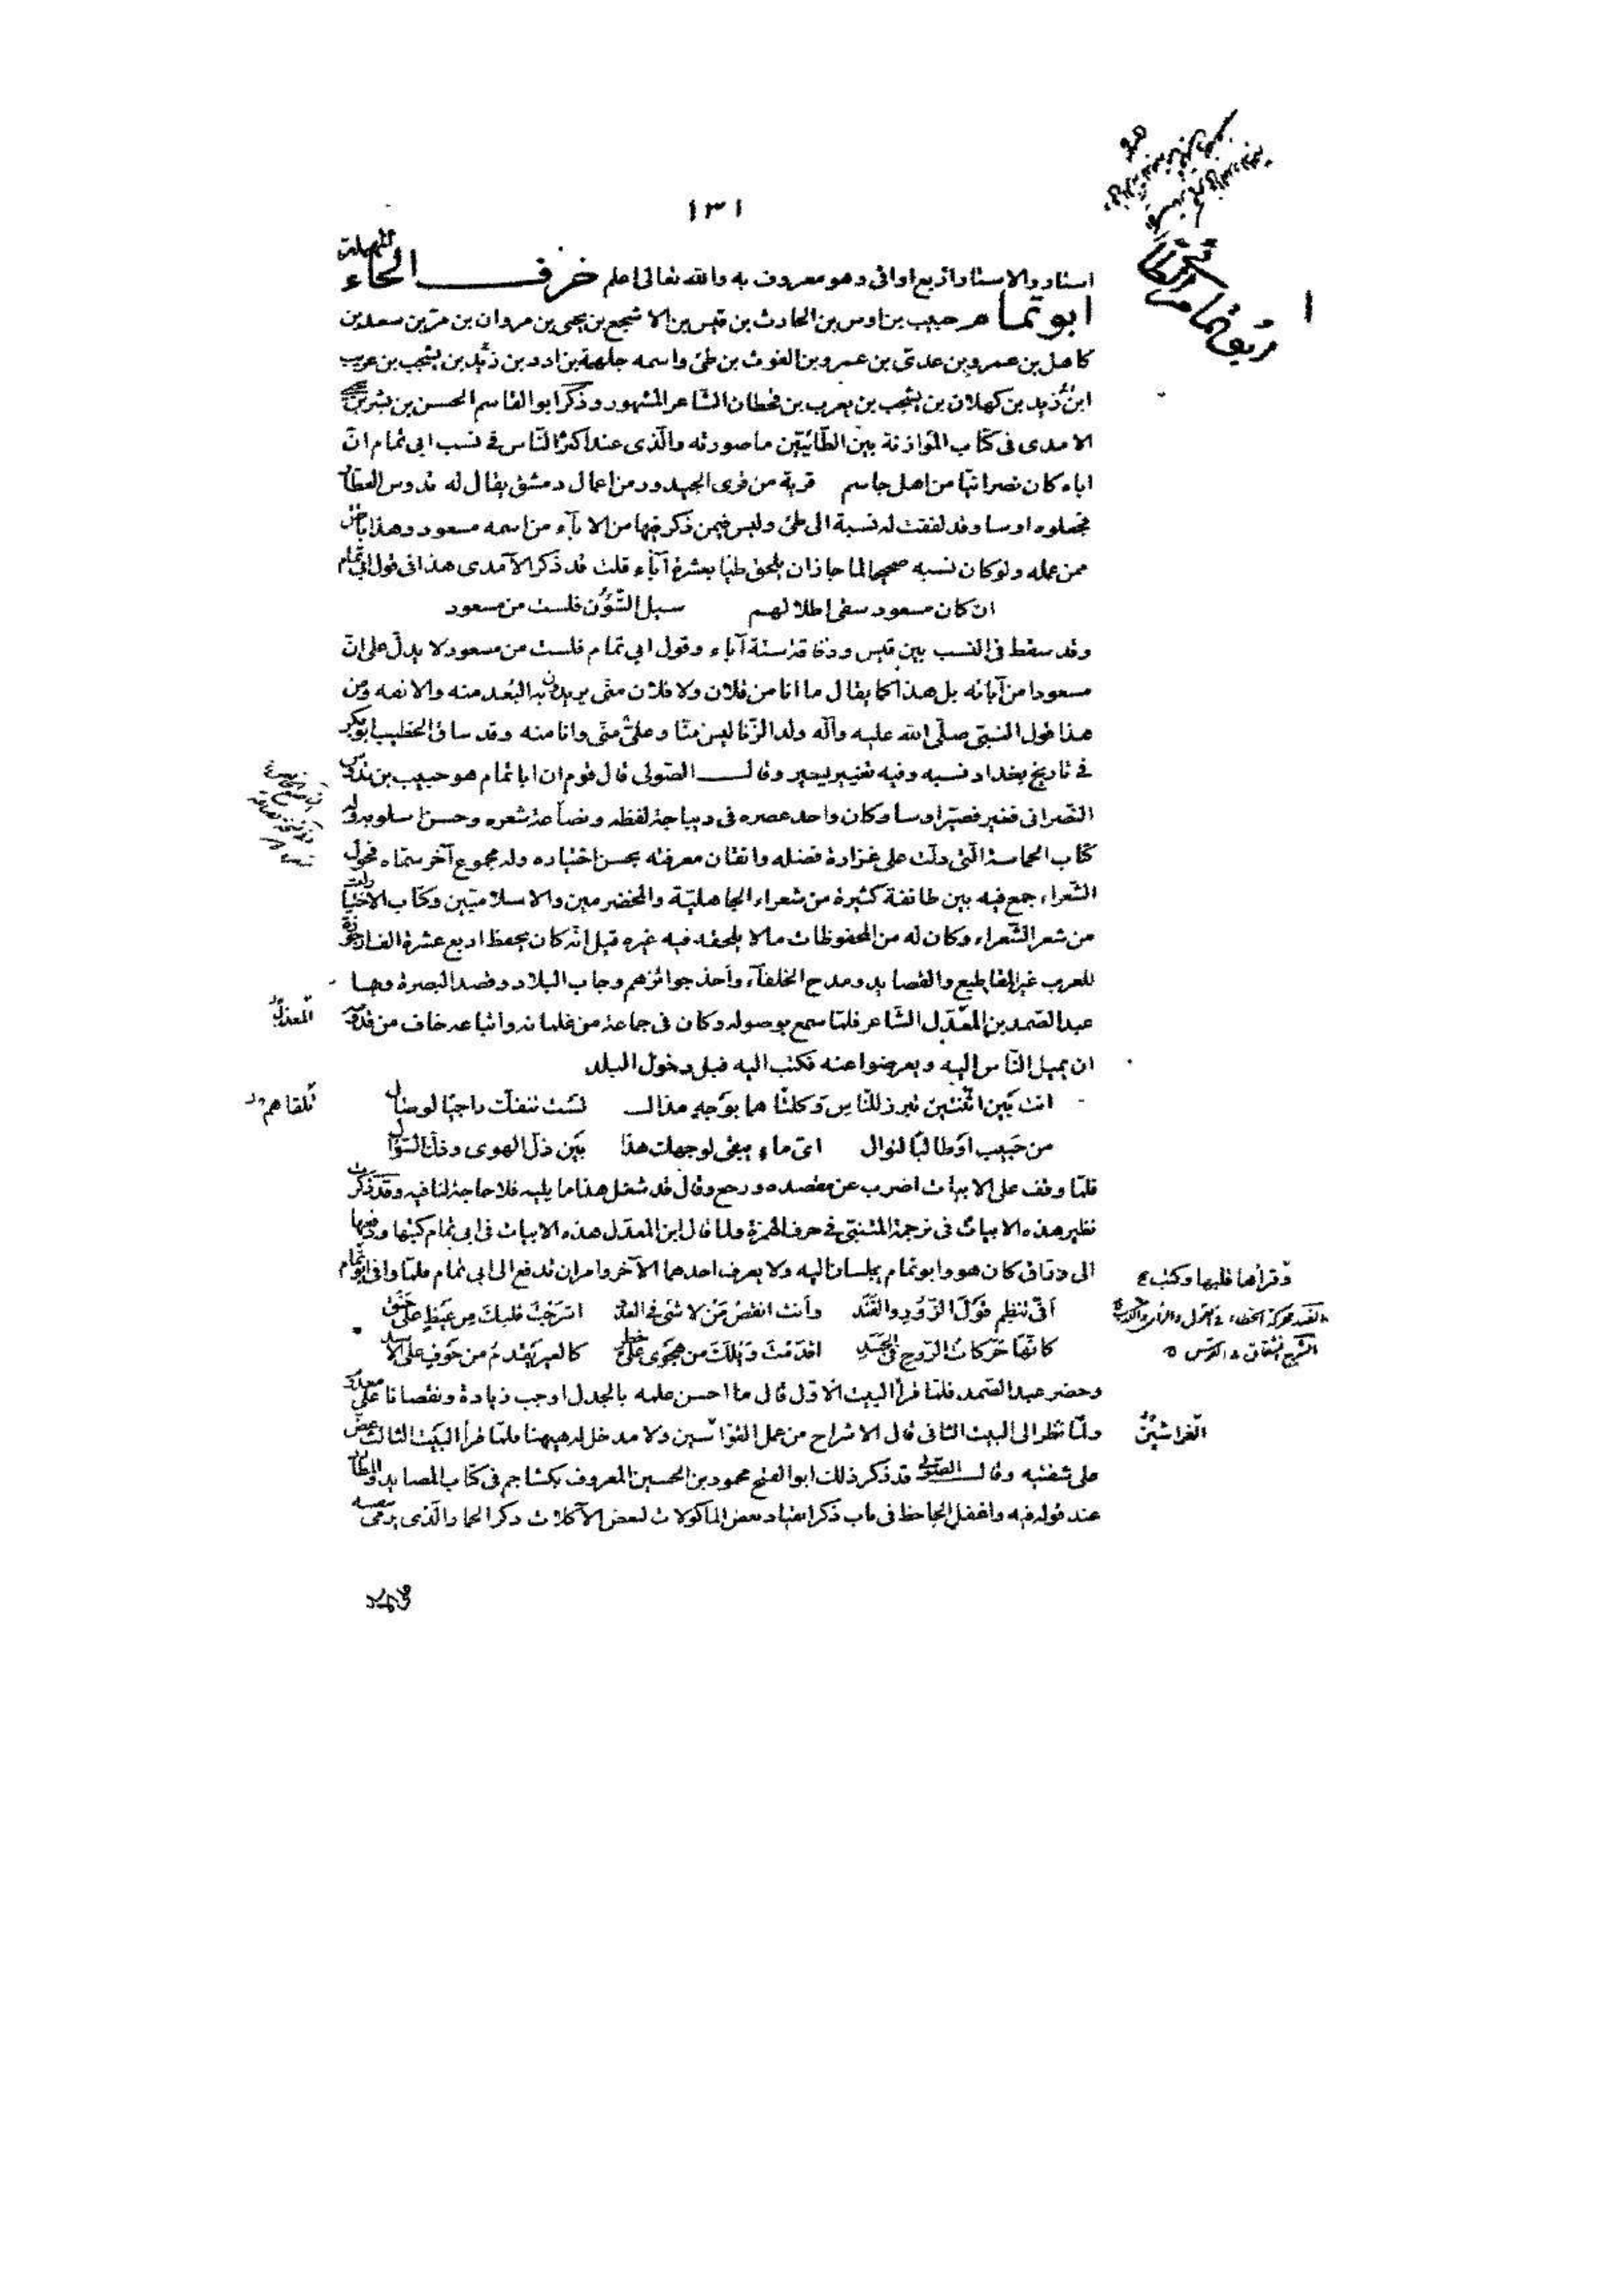 ١٣١
استار والاستار اربع اواق وهو معروف به والله تعالى اعلم حرف الحاء المهملة
ابو تمام حبيب بن اوس بن الحارث بن قيس بن الاشجع بن يحيى بن مروان بن مر بن سعد بن
كاهل بن عمرو بن عدى بن عمرو بن الغوث بن طئ واسمه جلهمة بن ادد بن زيد بن يشجب بن عريب
ابن زيد بن كهلان بن يشجب بن يعرب بن قحطان الشاعر المشهور وذكر ابو القاسم الحسن بن بشر بن
الامدى فى كتاب الموازنة بين الطائيين ما صورته والذى عند اكثر الناس فى نسب ابى تمام ان
اباه كان نصرانيا من اهل جاسم قرية من قرى الجيدور من اعمال دمشق يقال له تدوس العطار
فجعلوه اوسا وقد لفقت له نسبة الى طئ وليس فيمن ذكر فيها من الآباء من اسمه مسعود وهذا باطل
ممن عمله ولو كان نسبه صحيحا لما جاز ان يلحق طيا بعشرة آباء قلت قد ذكر الآمدى هذا فى قول ابى تمام
ان كان مسعود سقى اطلالهم سبل الشؤن فلست من مسعود
وقد سقط فى النسب بين قيس ودفاقة ستة آباء وقول ابى تمام فلست من مسعود لا يدل على ان
مسعودا من آبائه بل هذا كما يقال ما انا من فلان ولا فلان منى يريدون به البعد منه والانفه ومن
هذا قول النبى صلى الله عليه وآله ولد الزنا ليس منا وعلى منى وانا منه وقد ساق الخطيب ابو بكر
فى تاريخ بغداد نسبه وفيه تغيير يسير وقال الصولى قال قوم ان ابا تمام هو حبيب بن تدوس
النصرانى فغير فصير اوسا وكان واحد عصره فى ديباجة لفظه ونصاعة شعره وحسن اسلوبه وله
كتاب الحماسة التى دلت على غزارة فضله واتقان معرفته بحسن اختياره وله مجموع آخر سماه فحول
الشعراء جمع فيه بين طائفة كثيرة من شعراء الجاهلية والمخضرمين والاسلاميين وكتاب الاختيارات
من شعر الشعراء وكان له من المحفوظات ما لا يلحقه فيه غيره قيل انه كان يحفظ اربع عشرة الف ارجوزة
للعرب غير المقاطيع والقصايد ومدح الخلفآء واخذ جوائزهم وجاب البلاد وقصد البصرة وبها
عبد الصمد بن المعذل الشاعر فلما سمع بوصوله وكان فى جماعة من غلمانه واتباعه خاف من قدومه
المعذل
ان يميل الناس اليه ويعرضوا عنه فكتب اليه قبل دخول البلد
انت بين اثنتين تبرز للناس وكلتاهما بوجه مذال لست تنفك راجيا لوصال
تلقاهم
من حبيب او طالبا لنوال اى ماء يبقى لوجهك هذا بين ذل الهوى وذل السؤال
فلما وقف على الابيات اضرب عن مقصده ورجع وقال قد شغل هذا ما يليه فلا حاجة لنا فيه وقد ذكرت
نظير هذه الابيات فى ترجمة المتنبى فى حرف الهمزة ولما قال ابن المعذل هذه الابيات فى ابى تمام كتبها ودفعها
الى وراق كان هو وابو تمام يجلسان اليه ولا يعرف احدهما الآخر وامر ان تدفع الى ابى تمام فلما وافى ابو تمام
وقرأها قلبها وكتب
افى تنظم قول الزور والفند وانت انقص من لا شئ فى العدد اشرجت قلبك من غيظ على حنق
كانها حركات الروح فى الجسد اقدمت ويلك من هجوى على خطر كالعير يقدم من خوف على الاسد
وحضر عبد الصمد فلما قرأ البيت الاول قال ما احسن علمه بالجدل اوجب زيادة ونقصانا على معدوم
ولما نظر الى البيت الثانى قال الاشراج من عمل الفواشين ولا مدخل له ههنا فلما قرأ البيت الثالث عض
الفراشين
على شفتيه وقال الصولى قد ذكر ذلك ابو الفتح محمود بن الحسين المعروف بكشاجم فى كتاب المصايد والمطارد
عند قوله فيه واغفل الجاحظ فى باب ذكر انقياد بعض الماكولات لبعض الآكلات ذكر الحمار الذى يرمى بنفسه